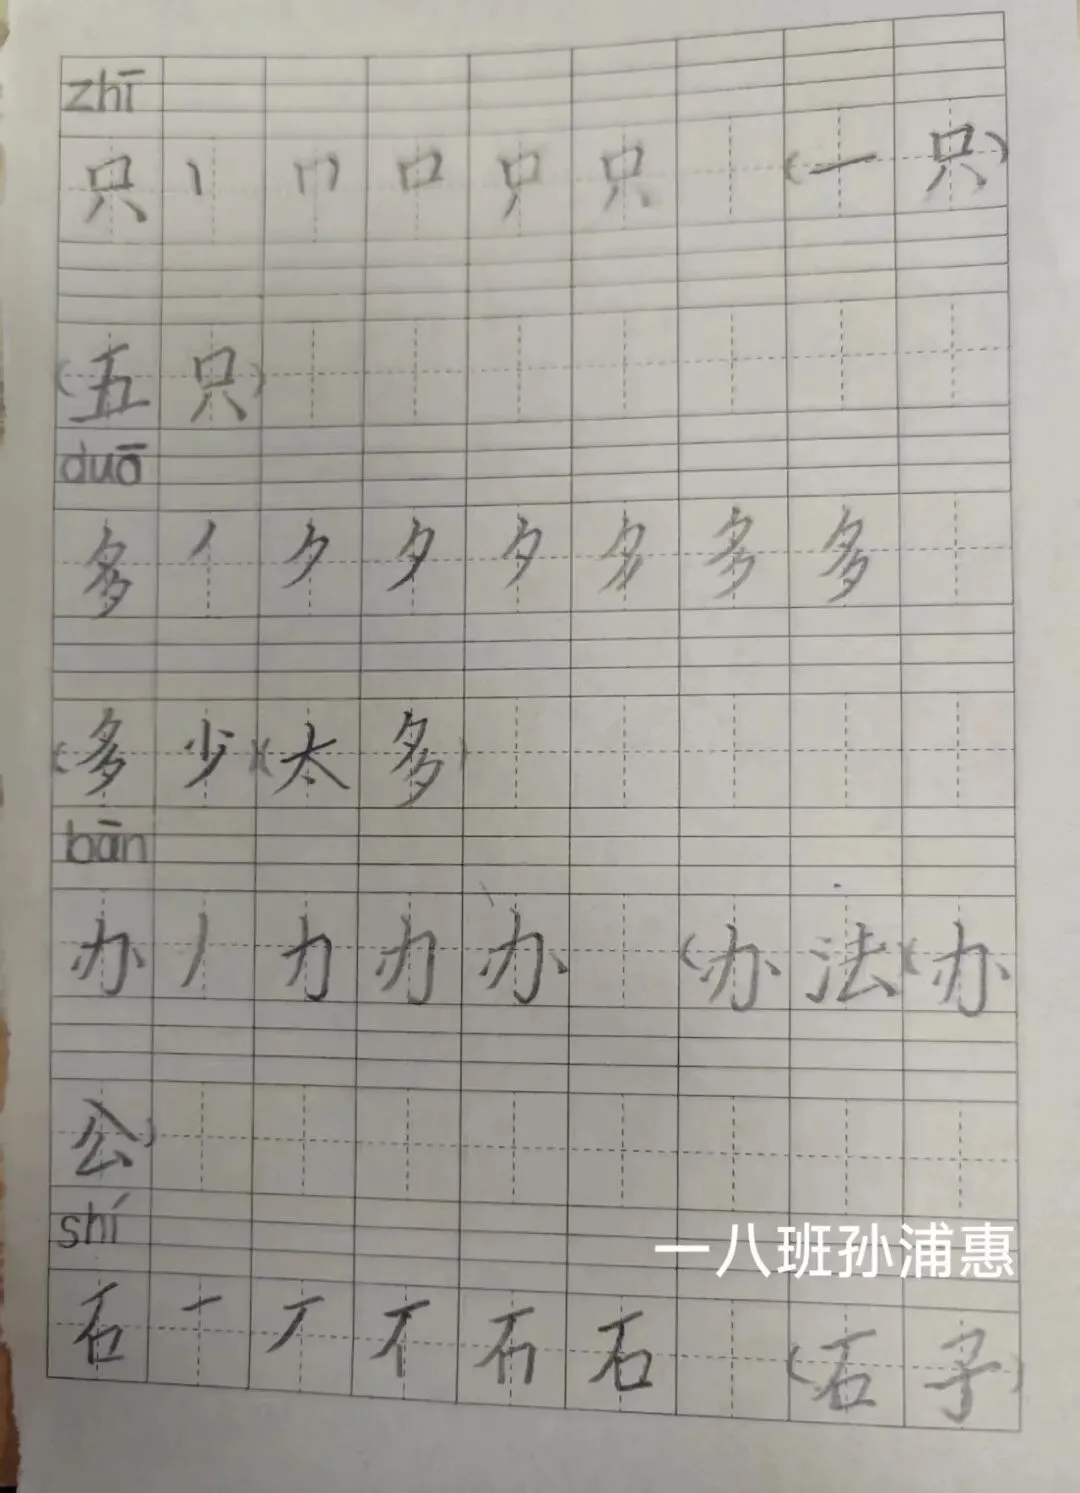 zhī
只 丨 冂 口 只 只 (一 只)
(五 只)
duō
多 丿 ク 夕 多 多 多
(多 少)(太 多)
bān
办 丿 力 办 办 (办 法)(办
公)
shí
一八班孙浦惠
石 一 丆 石 (石 子)